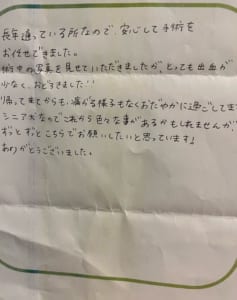 長年通っている所なので、安心して手術を
お任せできました。
術中の写真を見せていただきましたが、とっても出血が
少なく、おどろきました!!
帰って来てからも、痛がる様子もなくおだやかに過ごしてます
シニア犬なのでこれから色々な事があるかもしれませんが、
ずっとずっとこちらでお願いしたいと思っています!
ありがとうございました。